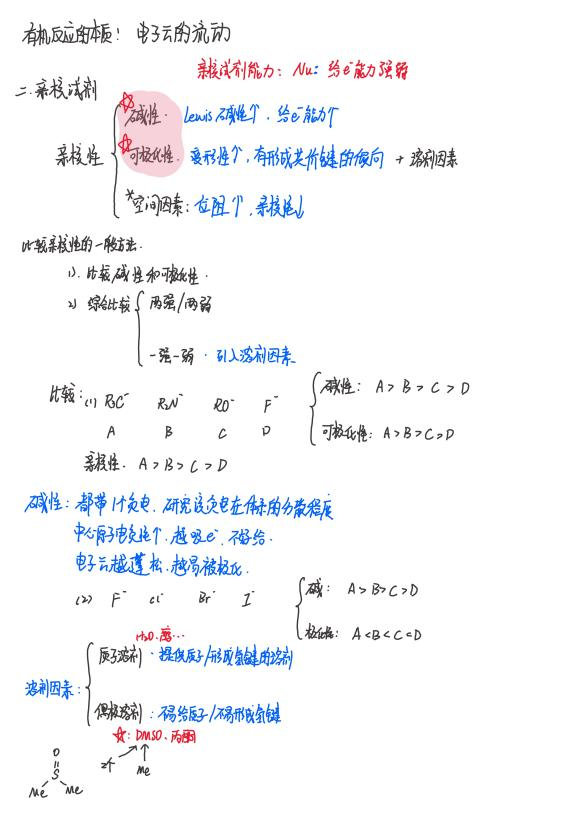 有机反应的本质！电子云的流动
亲核试剂能力：Nu: 给e⁻能力强弱
二.亲核试剂
亲核性
☆碱性. Lewis碱性↑. 给e⁻能力↑
☆可极化性. 变形性↑, 有形成共价键的倾向 + 溶剂因素
*空间因素: 位阻↑, 亲核性↓
比较亲核性的一般方法.
1). 比较碱性和可极化性.
2) 综合比较
两强/两弱
一强一弱. 引入溶剂因素
比较: (1) R₃C⁻ R₂N⁻ RO⁻ F⁻
A B C D
碱性: A > B > C > D
可极化性: A > B > C > D
亲核性. A > B > C > D
碱性: 都带1个负电. 研究该负电在体系的分散程度
中心原子电负性↑. 越吸e⁻. 不易给.
电子云越蓬松. 越易被极化.
(2) F⁻ Cl⁻ Br⁻ I⁻
碱: A > B > C > D
极化性: A < B < C = D
溶剂因素:
H₂O. 醇…
质子溶剂. 提供质子/形成氢键的溶剂
偶极溶剂: 不易给质子/不易形成氢键
☆: DMSO. 丙酮
O
S
Me Me
2个 Me